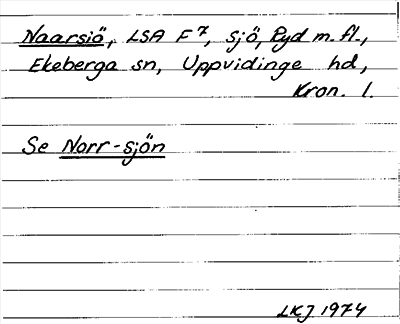 Naarsiö, LSA F7, sjö, Ryd m.fl.,
Ekeberga sn, Uppvidinge hd,
Kron. l.
Se Norr-sjön
LKJ 1974